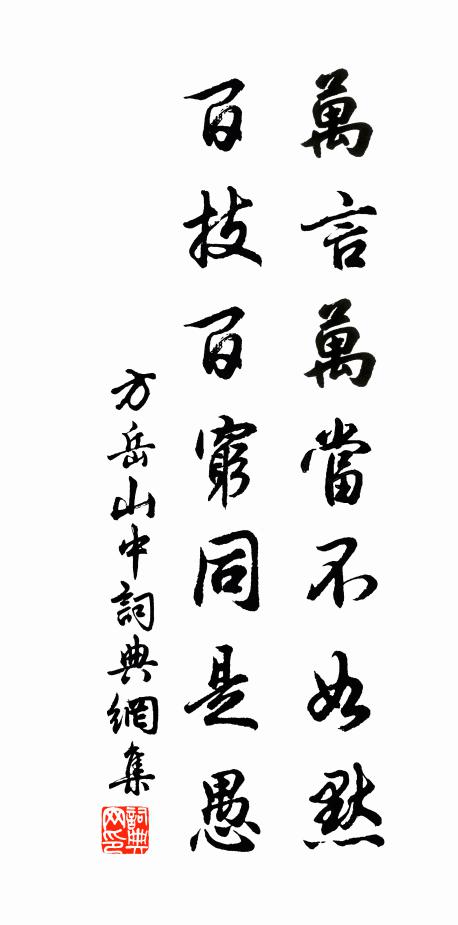 萬言萬當不如默
百技百窮同是愚
方岳山中詞典網集
詞典
网印